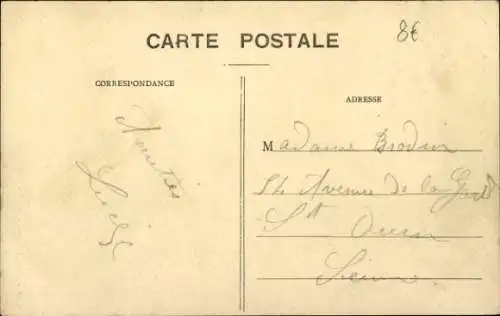 8€
CARTE POSTALE
CORRESPONDANCE
Amitiés
ADRESSE
Madame Brodain
Avenue de la
St Ouen
Seine